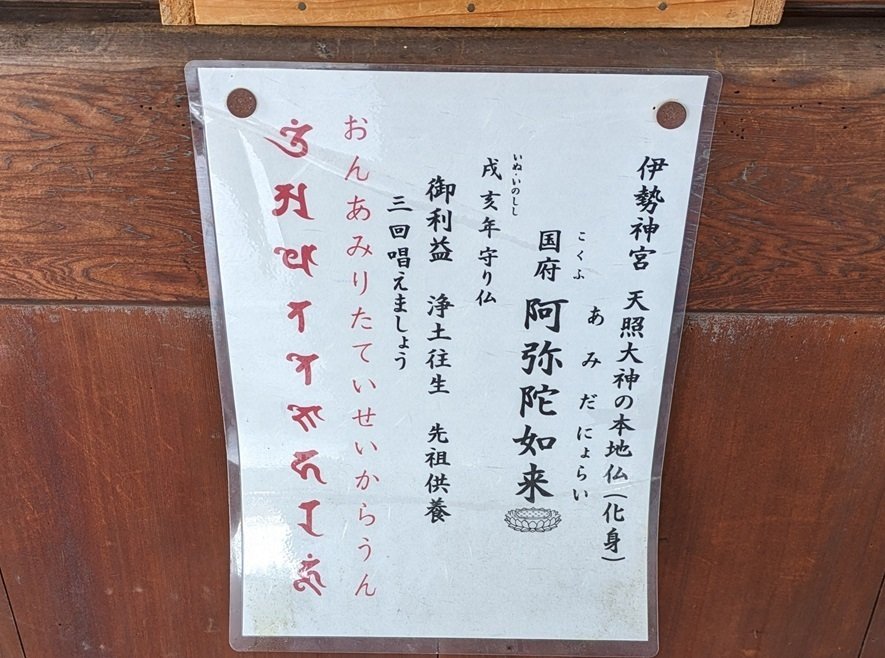 伊勢神宮 天照大神の本地仏(化身)
こくふ あみだにょらい
国府 阿弥陀如来
いぬ・いのしし
戌亥年守り仏
御利益 浄土往生 先祖供養
三回唱えましょう
おんあみりたていせいからうん